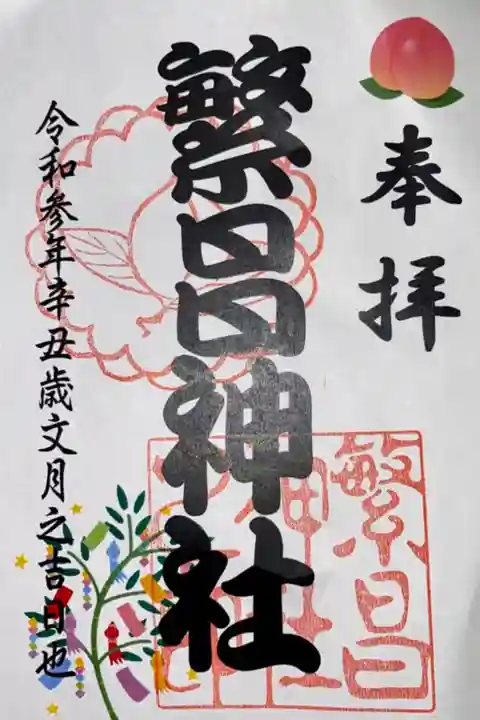 奉拝
繁昌神社
令和参年辛丑歳文月之吉日也
繁昌